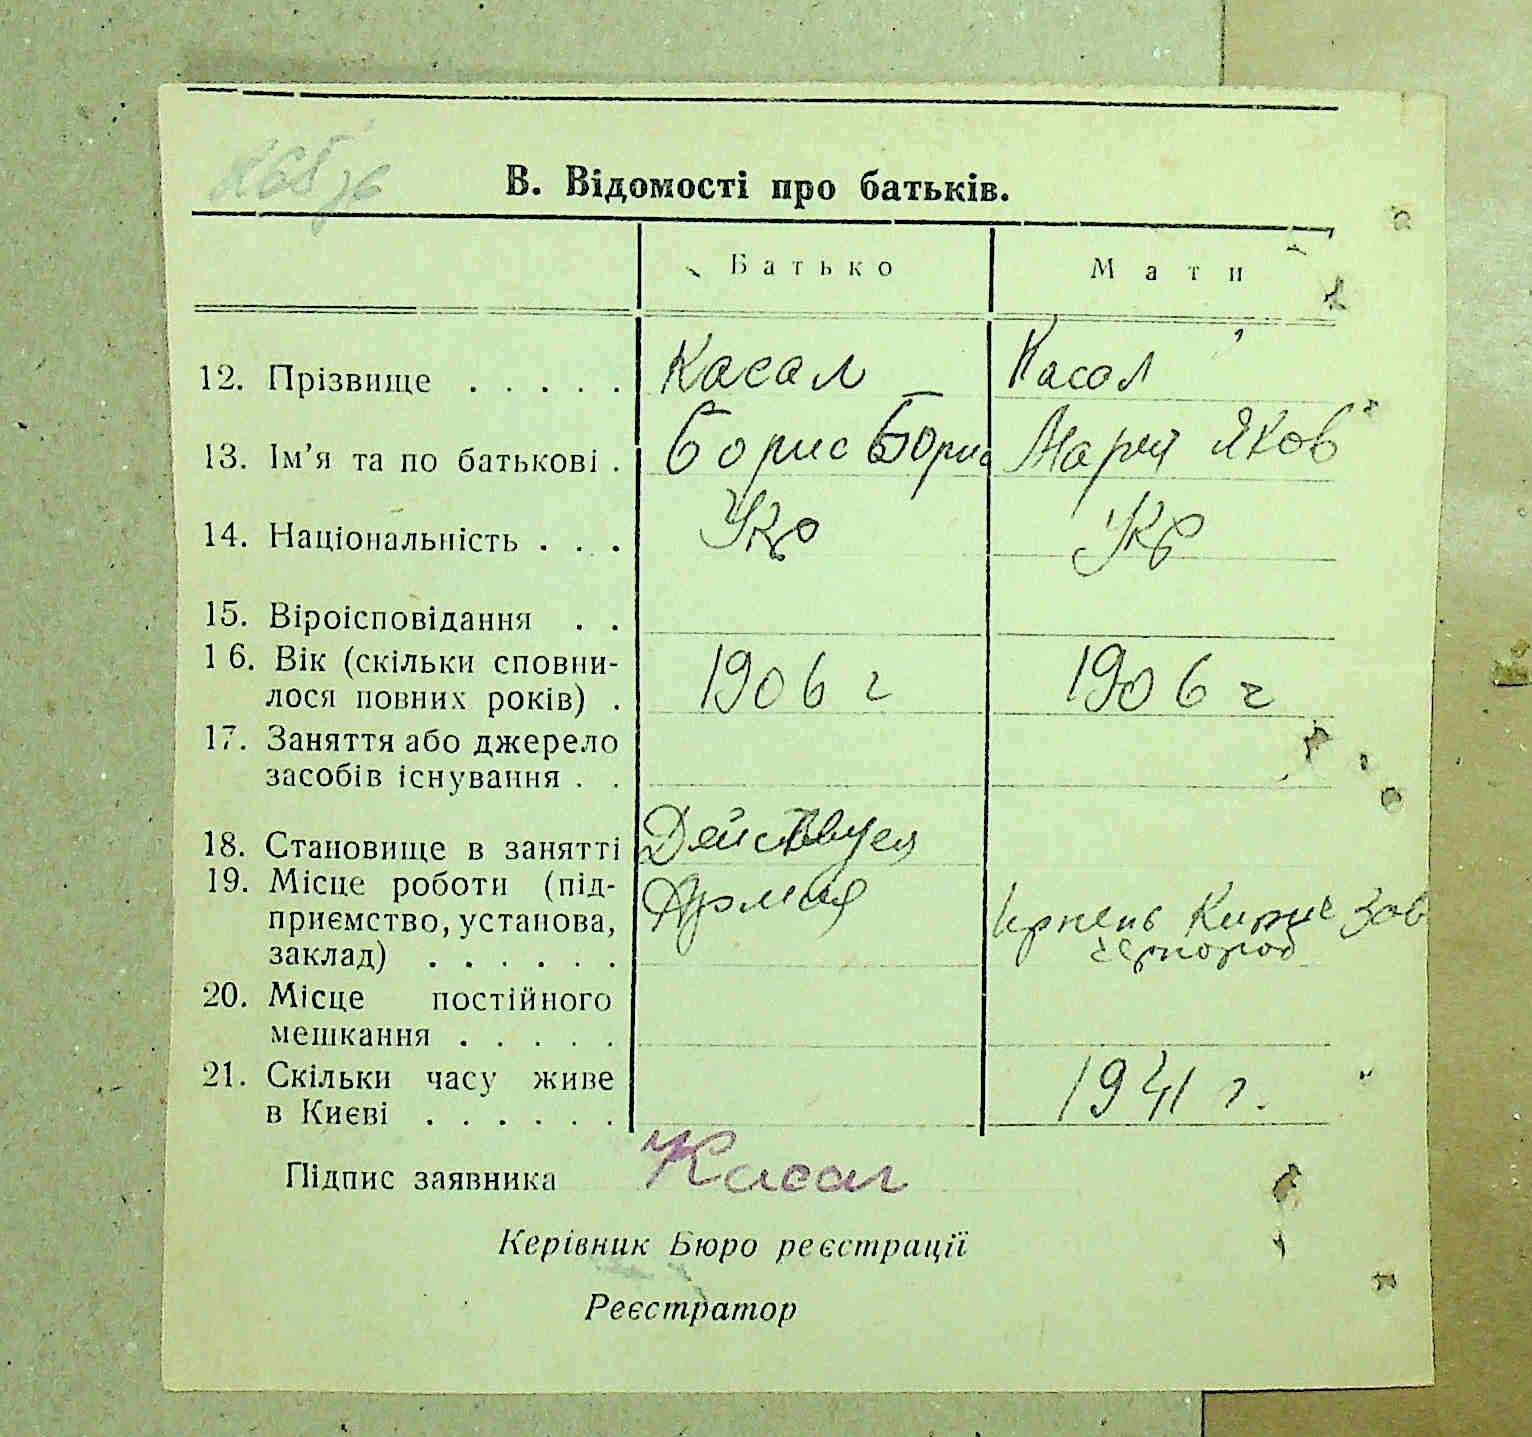 В. Відомості про батьків.
Батько Мати
12. Прізвище . . . . . Касал Касал
13. Ім'я та по батькові . Борис Борис Мария Яков
14. Національність . . . Укр Укр
15. Віроісповідання . .
16. Вік (скільки сповни-
лося повних років) . 1906 г 1906 г
17. Заняття або джерело
засобів існування . .
18. Становище в занятті Действуея
19. Місце роботи (під- Армия
приємство, установа, Ирпень Кирпич Зав
заклад) . . . . . .
20. Місце постійного
мешкання . . . . .
21. Скільки часу живе
в Києві . . . . . . 1941 г.
Підпис заявника Касал
Керівник Бюро реєстрації
Реєстратор